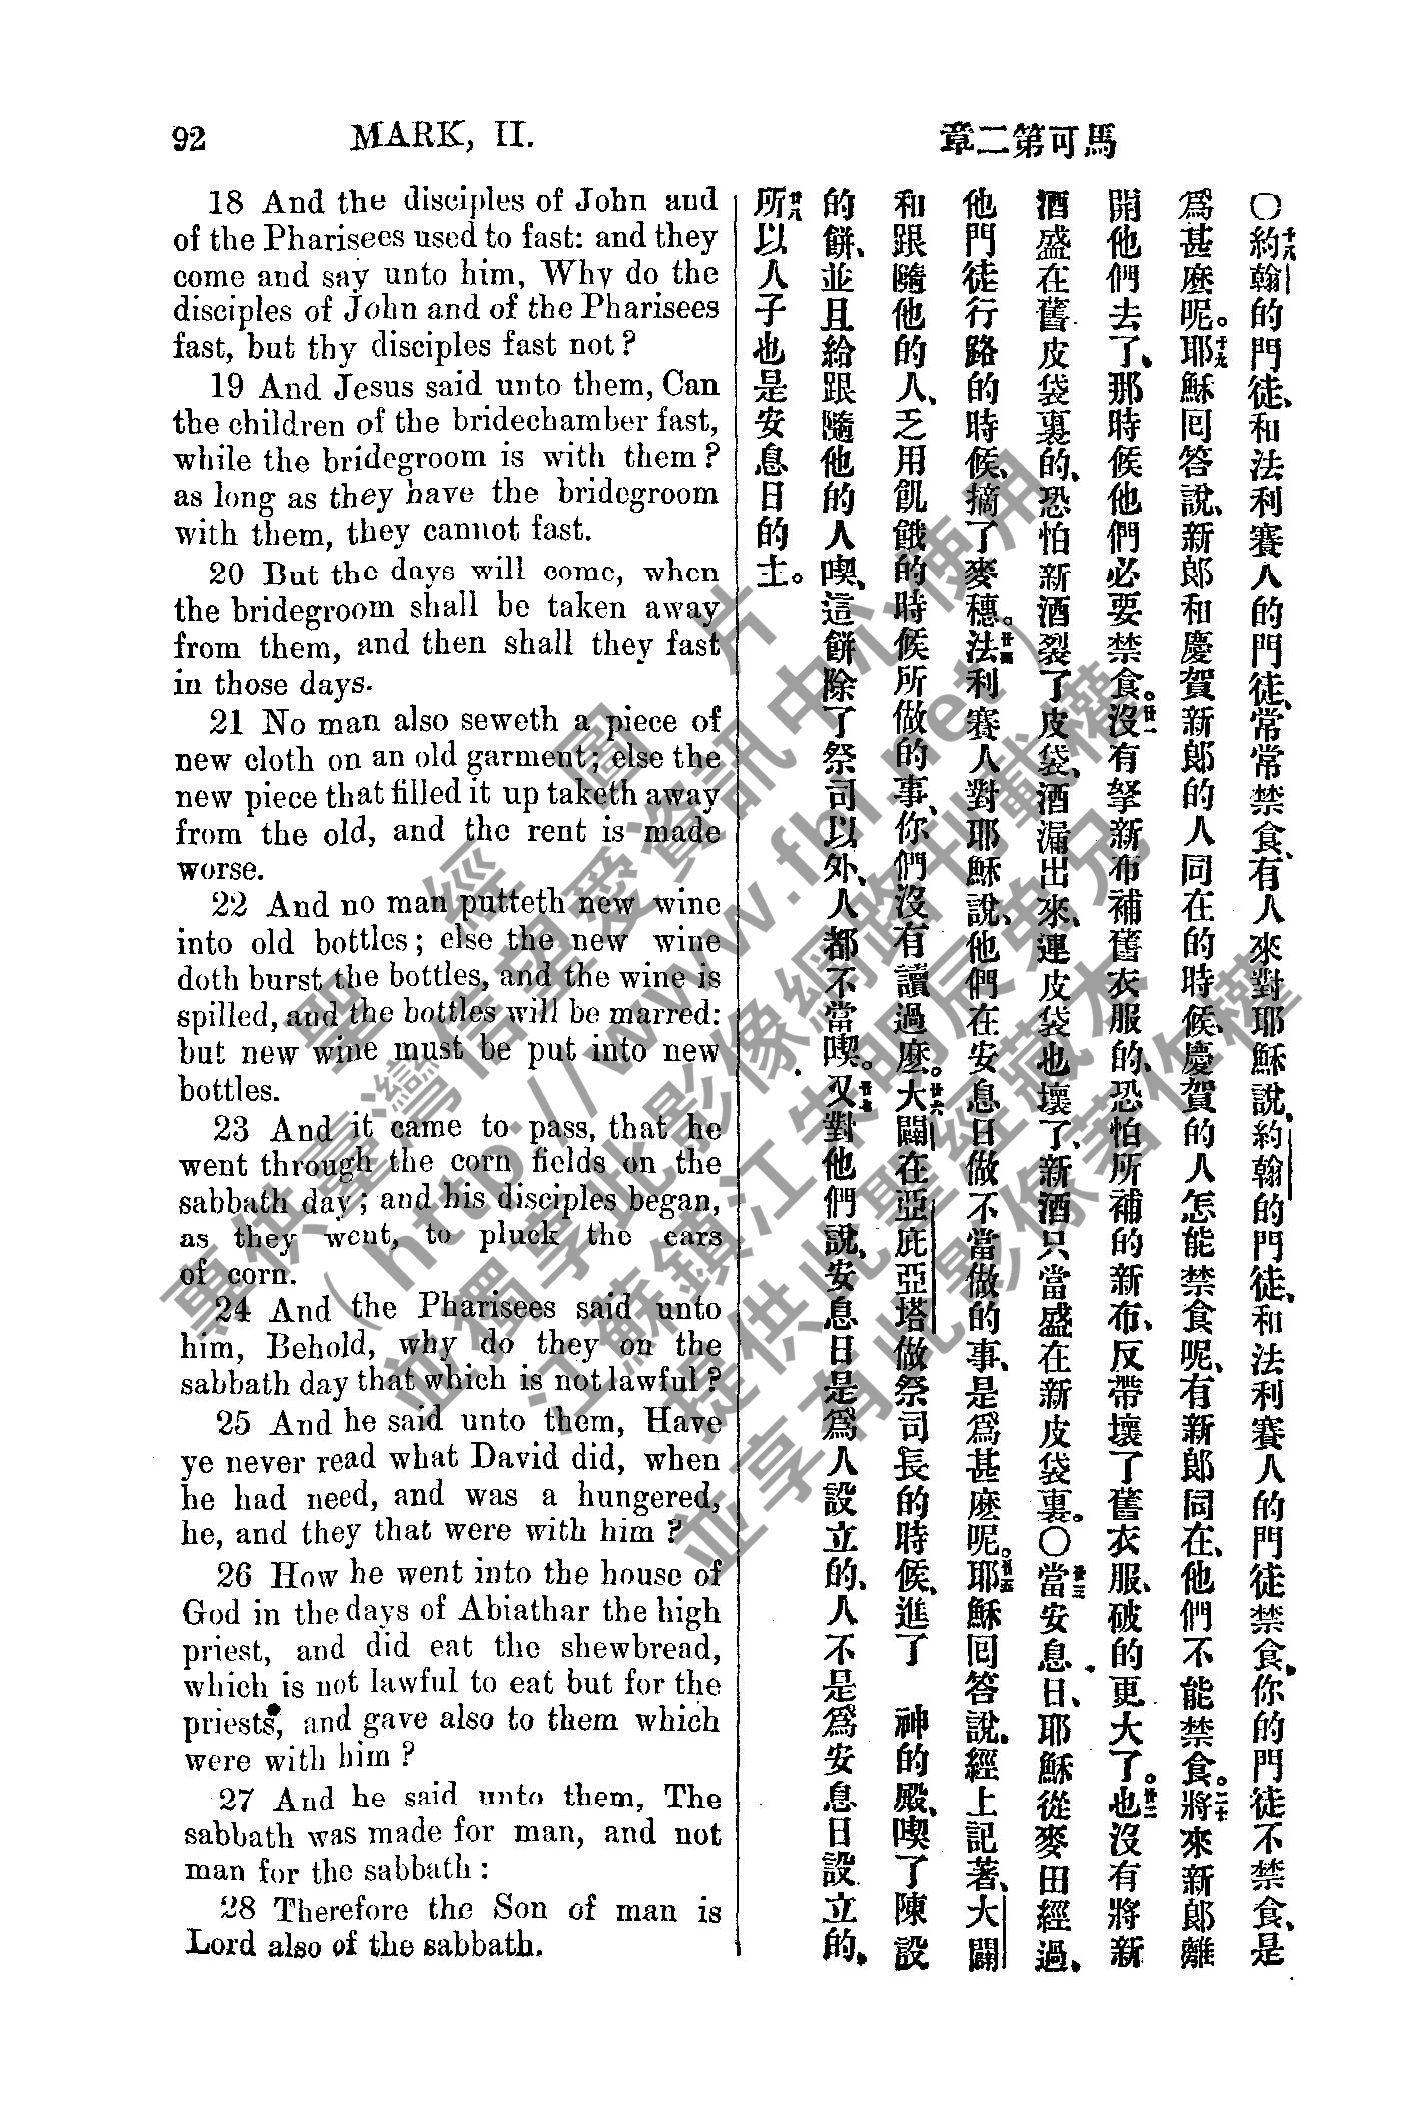 92 MARK, II.
章二第可馬
18 And the disciples of John and
of the Pharisees used to fast: and they
come and say unto him, Why do the
disciples of John and of the Pharisees
fast, but thy disciples fast not?
19 And Jesus said unto them, Can
the children of the bridechamber fast,
while the bridegroom is with them?
as long as they have the bridegroom
with them, they cannot fast.
20 But the days will come, when
the bridegroom shall be taken away
from them, and then shall they fast
in those days.
21 No man also seweth a piece of
new cloth on an old garment; else the
new piece that filled it up taketh away
from the old, and the rent is made
worse.
22 And no man putteth new wine
into old bottles; else the new wine
doth burst the bottles, and the wine is
spilled, and the bottles will be marred:
but new wine must be put into new
bottles.
23 And it came to pass, that he
went through the corn fields on the
sabbath day; and his disciples began,
as they went, to pluck the ears
of corn.
24 And the Pharisees said unto
him, Behold, why do they on the
sabbath day that which is not lawful?
25 And he said unto them, Have
ye never read what David did, when
he had need, and was a hungered,
he, and they that were with him?
26 How he went into the house of
God in the days of Abiathar the high
priest, and did eat the shewbread,
which is not lawful to eat but for the
priests, and gave also to them which
were with him?
27 And he said unto them, The
sabbath was made for man, and not
man for the sabbath:
28 Therefore the Son of man is
Lord also of the sabbath.
〇十八約翰的門徒、和法利賽人的門徒、常常禁食、有人來對耶穌說、約翰的門徒、和法利賽人的門徒禁食、你的門徒不禁食、是
爲甚麽呢。十九耶穌囘答說、新郎和慶賀新郎的人同在的時候、慶賀的人怎能禁食呢、有新郎同在、他們不能禁食。二十將來新郎離
開他們去了、那時候他們必要禁食。廿一沒有拏新布補舊衣服的、恐怕所補的新布、反帶壞了舊衣服、破的更大了。廿二也沒有將新
酒盛在舊皮袋裏的、恐怕新酒裂了皮袋、酒漏出來、連皮袋也壞了、新酒只當盛在新皮袋裏。〇廿三當安息日、耶穌從麥田經過、
他門徒行路的時候、摘了麥穗。廿四法利賽人對耶穌說、他們在安息日做不當做的事、是爲甚麽呢。廿五耶穌囘答說、經上記著、大闢
和跟隨他的人、乏用飢餓的時候所做的事、你們沒有讀過麽。廿六大闢在亞庇亞塔做祭司長的時候、進了 神的殿、喫了陳設
的餅、並且給跟隨他的人喫、這餅除了祭司以外、人都不當喫。廿七又對他們說、安息日是爲人設立的、人不是爲安息日設立的、
廿八所以人子也是安息日的主。
聖經圖片
臺灣信望愛資訊中心使用
(http://www.fhl.net)
並獨享此影像網路刊載權
提供此聖經藏本
並享有此影像著作權